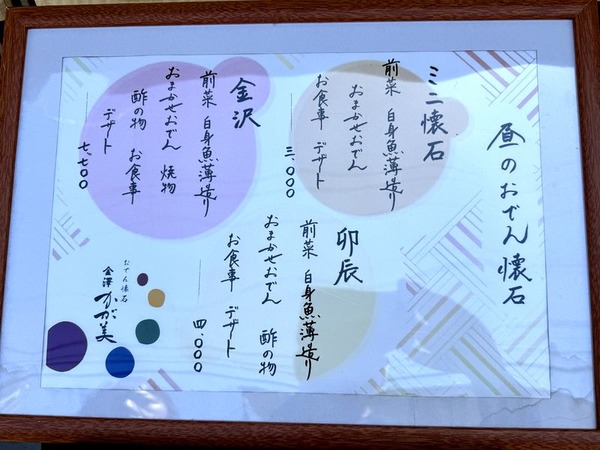 昼のおでん懐石
ミニ懐石
前菜 白身魚薄造り
おまかせおでん
お食事 デザート
三、〇〇〇
卯辰
前菜 白身魚薄造り
おまかせおでん 酢の物
お食事 デザート
四、〇〇〇
金沢
前菜 白身魚薄造り
おまかせおでん 焼物
酢の物 お食事
デザート
七、七〇〇
おでん懐石
金澤 かが美